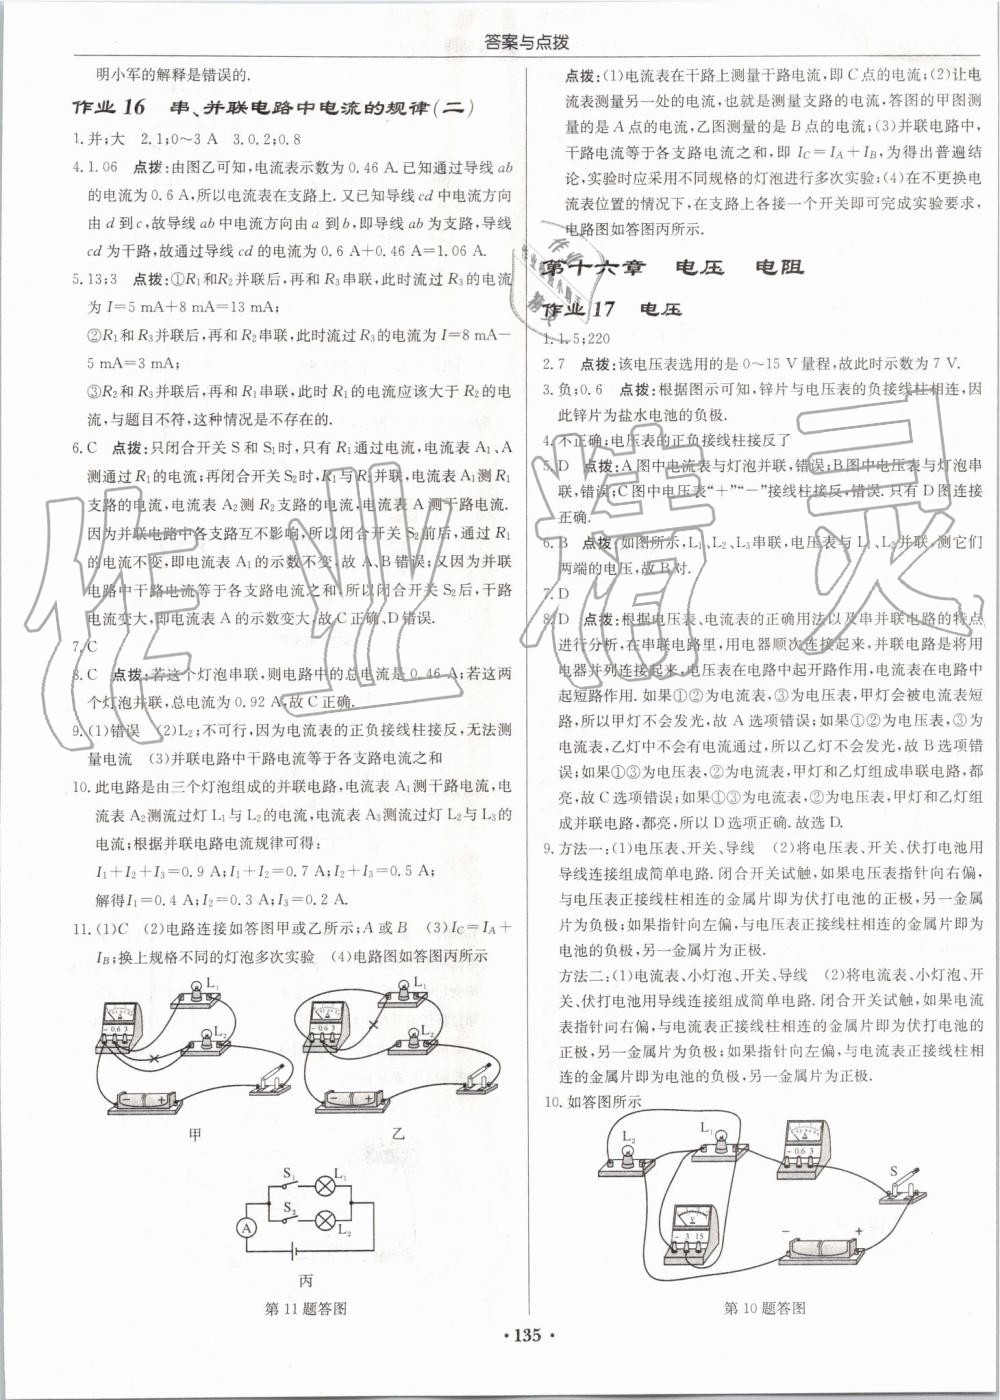 答案与点拨
明小军的解释是错误的.
作业16 串、并联电路中电流的规律(二)
1.并;大 2.1;0～3 A 3.0.2;0.8
4.1.06 点拨:由图乙可知,电流表示数为0.46 A.已知通过导线ab
的电流为0.6 A,所以电流表在支路上.又已知导线cd中电流方向
由d到c,故导线ab中电流方向由a到b,即导线ab为支路,导线
cd为干路,故通过导线cd的电流为0.6 A+0.46 A=1.06 A.
5.13;3 点拨:①R1和R2并联后,再和R3串联,此时流过R3的电流
为I=5 mA+8 mA=13 mA;
②R1和R3并联后,再和R2串联,此时流过R3的电流为I=8 mA-
5 mA=3 mA;
③R2和R3并联后,再和R1串联,此时R1的电流应该大于R2的电
流,与题目不符,这种情况是不存在的.
6.C 点拨:只闭合开关S和S1时,只有R1通过电流,电流表A1、A
测通过R1的电流;再闭合开关S2时,R1与R2并联,电流表A1测R1
支路的电流,电流表A2测R2支路的电流,电流表A测干路电流.
因为并联电路中各支路互不影响,所以闭合开关S2前后,通过R1的
电流不变,即电流表A1的示数不变.故A、B错误;又因为并联
电路中干路电流等于各支路电流之和,所以闭合开关S2后,干路
电流变大,即电流表A的示数变大,故C正确、D错误.
7.C
8.C 点拨:若这个灯泡串联,则电路中的总电流是0.46 A;若这两
个灯泡并联,总电流为0.92 A,故C正确.
9.(1)错误 (2)L2;不可行,因为电流表的正负接线柱接反,无法测
量电流 (3)并联电路中干路电流等于各支路电流之和
10.此电路是由三个灯泡组成的并联电路,电流表A1测干路电流,电
流表A2测流过灯L1与L2的电流,电流表A3测流过灯L2与L3的
电流;根据并联电路电流规律可得:
I1+I2+I3=0.9 A;I1+I2=0.7 A;I2+I3=0.5 A;
解得I1=0.4 A;I2=0.3 A;I3=0.2 A.
11.(1)C (2)电路连接如答图甲或乙所示;A或B (3)IC=IA+
IB;换上规格不同的灯泡多次实验 (4)电路图如答图丙所示
L1
L2
- 0.6 3
- +
甲
L1
L2
- 0.6 3
- +
乙
S1 L1
S2
L2
A
丙
第11题答图
点拨:(1)电流表在干路上测量干路电流,即C点的电流;(2)让电
流表测量另一处的电流,也就是测量支路的电流,答图的甲图测
量的是A点的电流,乙图测量的是B点的电流;(3)并联电路中,
干路电流等于各支路电流之和,即IC=IA+IB,为得出普遍结
论,实验时应采用不同规格的灯泡进行多次实验;(4)在不更换电
流表位置的情况下,在支路上各接一个开关即可完成实验要求,
电路图如答图丙所示.
第十六章 电压 电阻
作业17 电压
1.1.5;220
2.7 点拨:该电压表选用的是0～15 V量程,故此时示数为7 V.
3.负;0.6 点拨:根据图示可知,锌片与电压表的负接线柱相连,因
此锌片为盐水电池的负极.
4.不正确;电压表的正负接线柱接反了
5.D 点拨:A图中电流表与灯泡并联,错误;B图中电压表与灯泡串
联,错误;C图中电压表“+”“-”接线柱接反,错误.只有D图连接
正确.
6.B 点拨:如图所示,L1、L2、L3串联,电压表与L1、L2并联,测它们
两端的电压,故B对.
7.D
8.D 点拨:根据电压表、电流表的正确用法以及串并联电路的特点
进行分析,在串联电路里,用电器顺次连接起来,并联电路是将用
电器并列连接起来,电压表在电路中起开路作用,电流表在电路中
起短路作用.如果①②为电流表,③为电压表,甲灯会被电流表短
路,所以甲灯不会发光,故A选项错误;如果①②为电压表,③为
电流表,乙灯中不会有电流通过,所以乙灯不会发光,故B选项错
误;如果①③为电压表,②为电流表,甲灯和乙灯组成串联电路,都
亮,故C选项错误;如果①③为电流表,②为电压表,甲灯和乙灯组
成并联电路,都亮,所以D选项正确.故选D.
9.方法一:(1)电压表、开关、导线 (2)将电压表、开关、伏打电池用
导线连接组成简单电路.闭合开关试触,如果电压表指针向右偏,
与电压表正接线柱相连的金属片即为伏打电池的正极,另一金属
片为负极;如果指针向左偏,与电压表正接线柱相连的金属片即为
电池的负极,另一金属片为正极.
方法二:(1)电流表、小灯泡、开关、导线 (2)将电流表、小灯泡、开
关、伏打电池用导线连接组成简单电路.闭合开关试触,如果电流
表指针向右偏,与电流表正接线柱相连的金属片即为伏打电池的
正极,另一金属片为负极;如果指针向左偏,与电流表正接线柱相
连的金属片即为电池的负极,另一金属片为正极.
10.如答图所示
L2
L1
- 0.6 3
S
V
- 3 15
- +
第10题答图
• 135 •
作业精灵